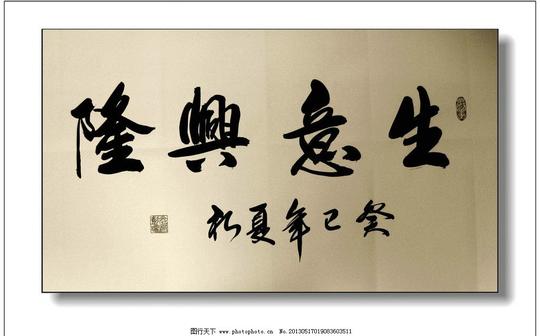 生意興隆
癸巳年夏
图行天下 www.photophoto.cn No.20130517019083603511